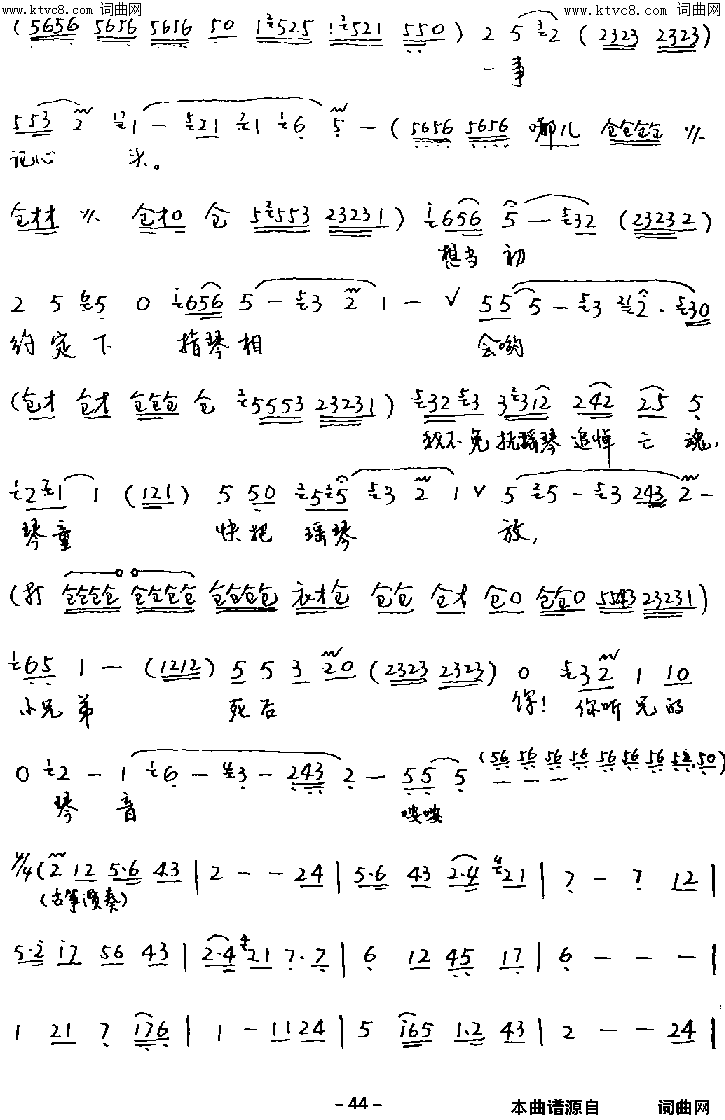 www.ktvc8.com 词曲网 www.ktvc8.com 词曲网
(5656 5656 5656 50 1525 1521 550) 2 5 2 (2323 2323)
一事
553 2 1 - 21 1 6 5 - (5656 5656 哪儿 仓仓仓仓
记心 头。
仓才才 仓才0 仓 5553 23231) 656 5 - 32 (23232)
想当 初
2 5 5 0 656 5 - 3 2 1 - 55 5 - 3 2· 30
约定下 指琴相 会哟
(仓才 仓才 仓仓仓 仓 5553 23231) 32 3 3312 242 2.5 5
我不免抚瑶琴追悼亡魂,
2 1 1 (121) 5 50 5 5 3 2 1 5 5 - 3 243 2 -
琴童 快把 瑶琴 放,
仓仓仓仓 仓仓仓仓 仓仓仓仓 衣才仓 仓仓 仓才 仓0 仓仓0 5543 23231)
65 1 - (1212) 5 5 3 20 (2323 2323) 0 3 2 1 10
小兄弟 死后 你! 你听兄的
0 2 - 1 6 - 3 - 243 2 - 55 5 (56 56 56 56 56 56 56 56 50)
琴 音
4/4 (2 12 5·6 43 | 2 - - 24 | 5·6 43 2·4 21 | 7 - 7 12 |
(古筝演奏)
5·2 17 56 43 | 2·4 21 7·7 | 6 12 45 17 | 6 - - - |
1 21 7 176 | 1 - 1124 | 5 165 1.2 43 | 2 - - 24 |
- 44 - 本曲谱源自 词曲网